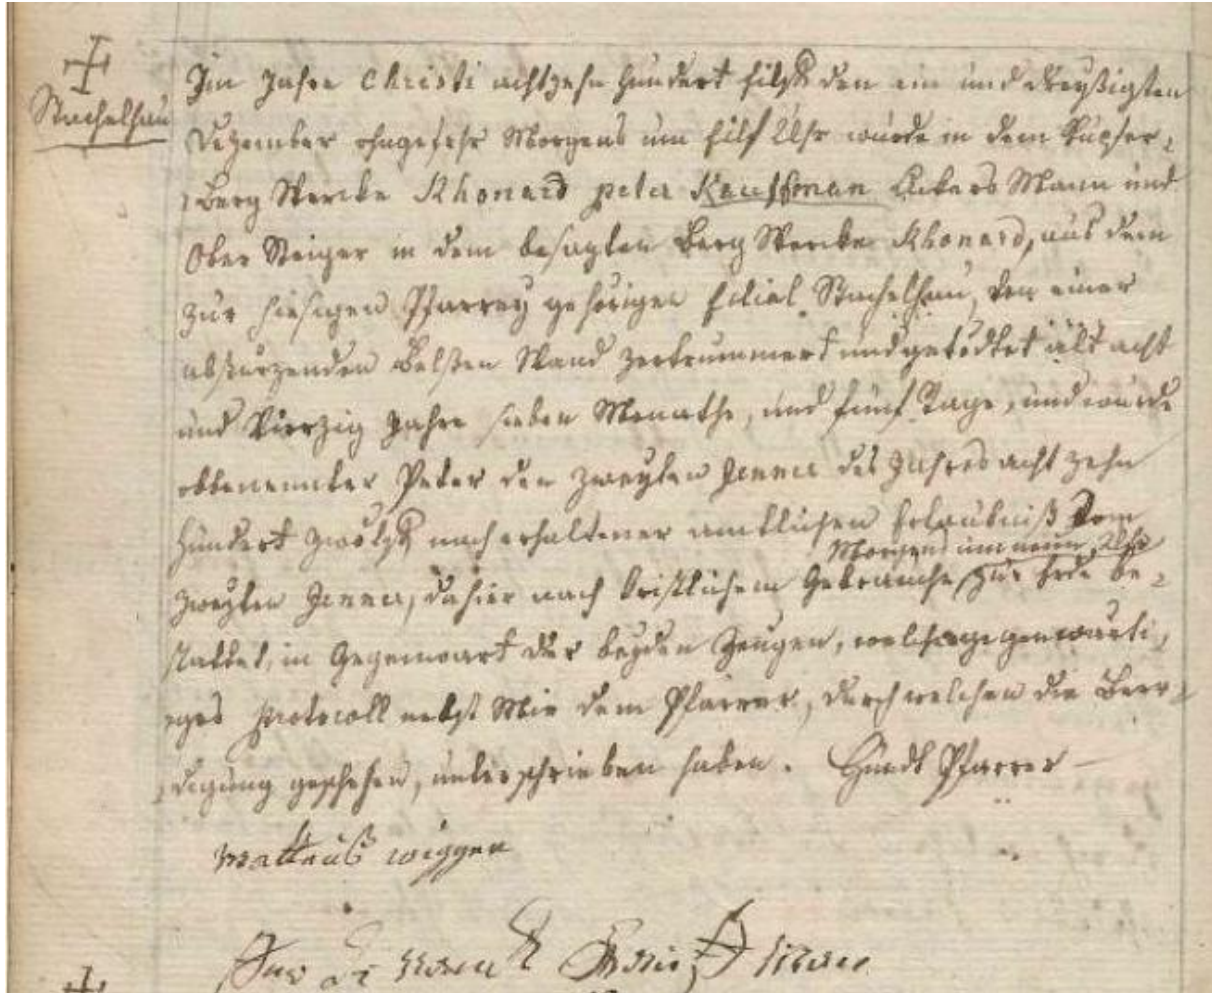 Stachelhau
Im Jahre Christi achtzehn hundert eilf den ein und dreyßigten
Dezember ohngefehr Morgens um eilf Uhr wurde in dem Kupfer¬
berg Wercke Rhonard peter Kauffman Ackers Mann und
Ober Steiger in dem besagten Berg Wercke Rhonard, aus dem
zur hiesigen Pfarrey gehörigen filial Stachelhau, von einer
abstürzenden Velßen Wand zertrummert und getödtet alt acht
und Vierzig Jahre sieben Monathe, und fünf Tage, und wurde
obbenennter Peter den zweyten Jenner des Jahres acht zehn
hundert zwölf nach erhaltener amtlichen Erlaubniß vom
Morgens um neun Uhr
zweyten Jenner, dahier nach Cristlichem Gebrauche, zur Erde be¬
stattet, in Gegenwart der beyden Zeugen, welche gegenwärti¬
ges protocoll nebst Mir dem Pfarrer, durch welchen die Beer¬
digung geschehen, unterschrieben haben. Pfarrer
Matteus wigger